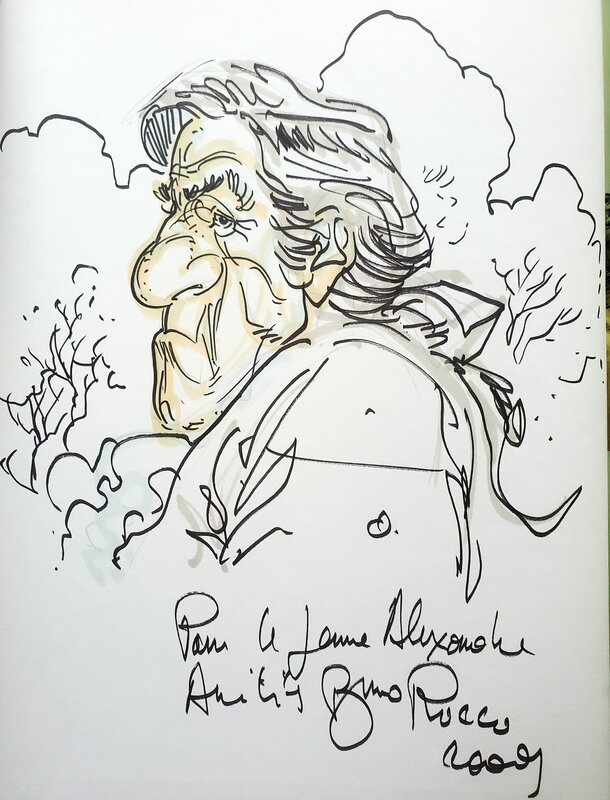 Pour le Jeune Alexandre
Amitiés Bruno Rocco
2009